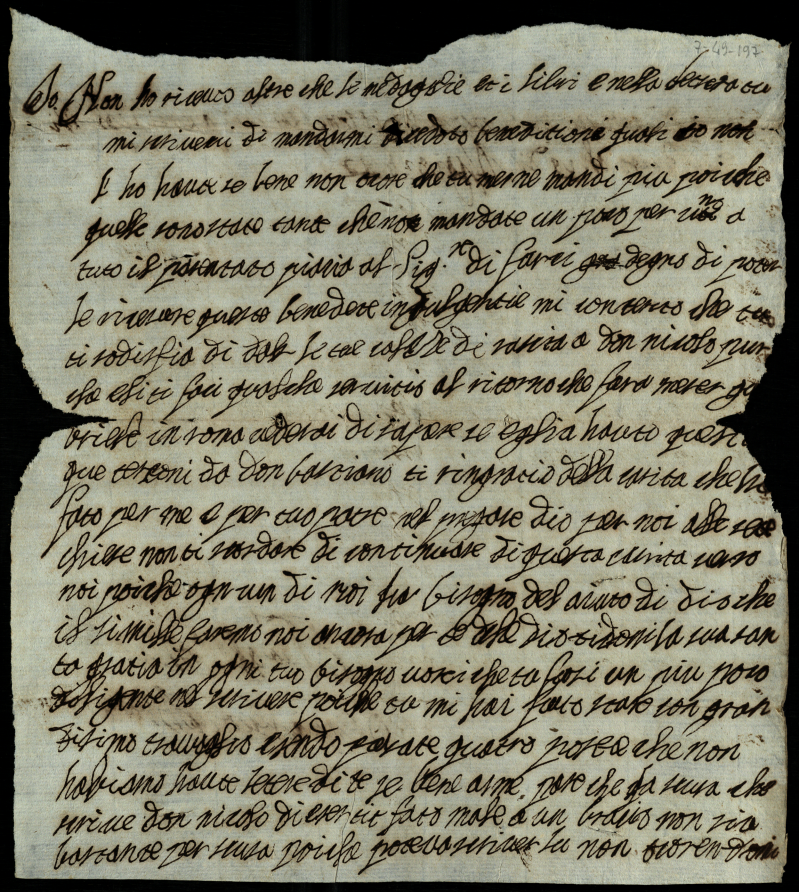 7-49-197
Jo. Non ho riceuto altre che le medaglie et i libri e nella letera tu
mi scriveui di mandarmi benedition quali io non
l ho haute se bene non ocore che tu me ne mandi piu poi che
quelle sono state tante che non mandate un poco per uno a
tuto il parentato piacia al Sig.re di farci degno di poter
le ricevere queste benedete indulgentie mi contento che tu
ti sodisfia di dar le tue di carita a don nicolo pur
che eli ti faci qualche servitio al ritorno che fara meser ga
briele in roma vederai di sapere se eglia hauto questi
que testoni da don bastiano ti ringratio della carita che hai
fato per me e per tuo patre nel pregare dio per noi alle
chiese non ti scordare di continuare di questa carita verso
noi poiche ogn un di noi ha bisogno del aiuto di dio che
il simille faremo noi ancora per te che dio ti doni la sua san
ta gratia in ogni tuo bisogno vorei che tu fosi un piu poco
diligente nel scrivere poiche tu mi hai fato stare con gran
disimo travaglio esendo pasate quatro poste che non
haviamo haute letere di te se bene a me pare che la scusa che
scrive don nicolo di esertti fato male a un bracio non sia
bastante per scusa poiche poteva scriver lu non ocorendomi